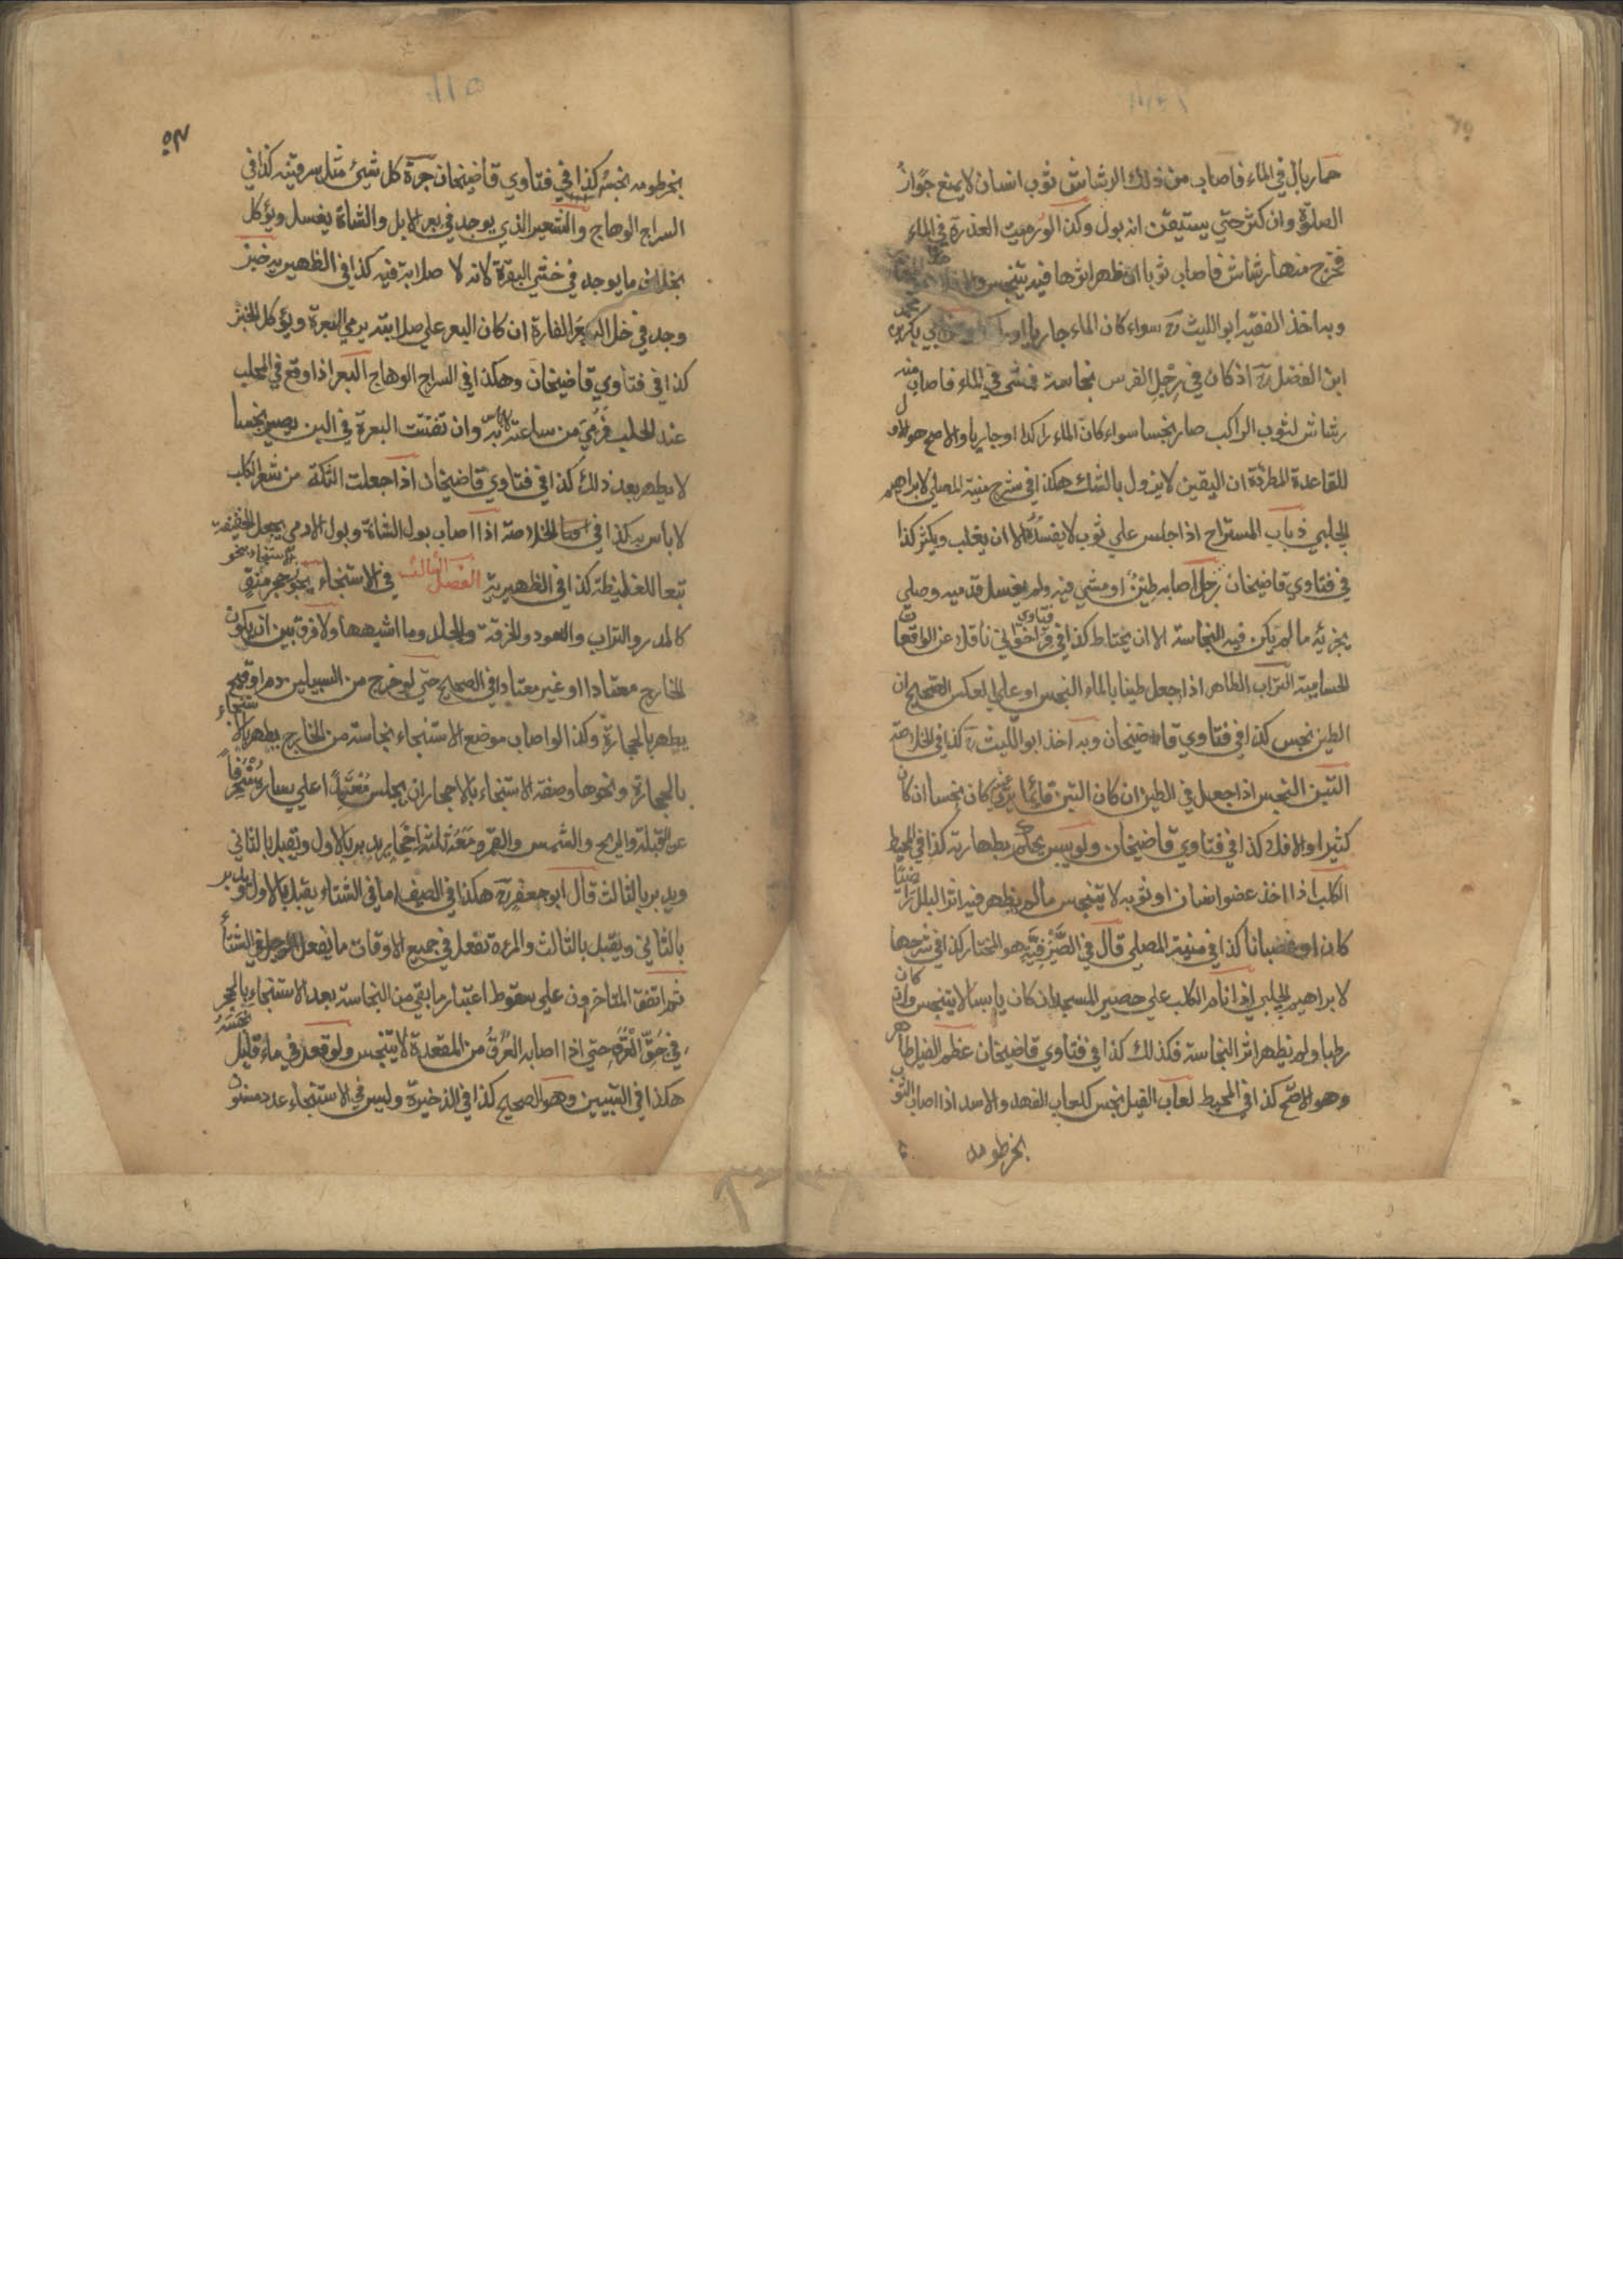 حمار بال في الماء فاصاب من ذلك الرشاش ثوب انسان لا يمنع جواز
الصلوة وان كثر حتي يستيقن انه بول وكذا لو رميت العذرة في الماء
فخرج منها رشاش فاصاب ثوبا ان ظهر اثرها فيه يتنجس والا فلا
وبه اخذ الفقيه ابو الليث رح سواء كان الماء جاريا او ابي بكر محمد بن
ابن الفضل رح اذ كان في رجل الفرس نجاسة فمشي في الماء فاصاب منه
رشاش لثوب الراكب صار نجسا سواء كان الماء راكدا او جاريا والاصح هو الاول
للقاعدة المطردة ان اليقين لا يزول بالشك هكذا في شرح منية المصلي لابراهيم
الحلبي ذباب المستراح اذا جلس علي ثوب لا يفسده الا ان يغلب ويكثر كذا
في فتاوي قاضيخان رجل اصابه طين او مشي فيه ولم يغسل قدميه وصلي
يجزئه ما لم يكن فيه النجاسة الا ان يحتاط كذا في فتاوي قراخواني ناقلا عن الواقعات
الحسامية التراب الطاهر اذا جعل طينا بالماء النجس او علي العكس الصحيح ان
الطين نجس كذا في فتاوي قاضيخان وبه اخذ ابو الليث رح كذا في الخلاصة
التبن النجس اذا جعل في الطين ان كان التبن قائما يري عينه كان نجسا ان كان
كثيرا والا فلا كذا في فتاوي قاضيخان ولو يبس يحكم بطهارته كذا في المحيط
الكلب اذا اخذ عضو انسان او ثوبه لا يتنجس ما لم يظهر فيه اثر البلل راضيا
كان او غضبانا كذا في منية المصلي قال في الصيرفية هو المختار كذا في شرحها
لابراهيم الحلبي اذا نام الكلب علي حصير المسجد ان كان يابسا لا يتنجس وان كان
رطبا ولم يظهر اثر النجاسة فكذلك كذا في فتاوي قاضيخان عظم الفيل طاهر
وهو الاصح كذا في المحيط لعاب الفيل نجس كلعاب الفهد والاسد اذا اصاب الثوب
بخرطومه
بخرطومه نجسه كذا في فتاوي قاضيخان جرة كل شيئ مثل سرقينه كذا في
السراج الوهاج والشعير الذي يوجد في بعر الابل والشاة يغسل ويؤكل
بخلاف ما يوجد في خثي البقرة لانه لا صلابة فيه كذا في الظهيرية خبز
وجد في خلاله بعر الفارة ان كان البعر علي صلابته يرمي البعرة ويؤكل الخبز
كذا في فتاوي قاضيخان وهكذا في السراج الوهاج البعر اذا وقع في المحلب
عند الحلب فرمي من ساعته لا باس به وان تفتتت البعرة في اللبن يصير نجسا
لا يطهر بعد ذلك كذا في فتاوي قاضيخان اذا جعلت التكة من شعر الكلب
لا باس به كذا في الخلاصة اذا اصاب بول الشاة وبول الادمي يجعل الخفيفة
تبعا للغليظة كذا في الظهيرية الفصل الثالث في الاستنجاء يجوز الاستنجاء بنحو حجر منق
كالمدر والتراب والعود والخرقة والجلد وما اشبهها ولا فرق بين ان يكون
الخارج معتادا او غير معتاد في الصحيح حتي لو خرج من السبيلين دم او قيح
يطهر بالحجارة وكذا لو اصاب موضع الاستنجاء نجاسة من الخارج يطهر بالاستنجاء
بالحجارة ونحوها وصفة الاستنجاء بالاحجار ان يجلس معتمدا علي يساره منحرفا
عن القبلة والريح والشمس والقمر ومعه ثلثة احجار يدبر بالاول ويقبل بالثاني
ويدبر بالثالث قال ابو جعفر رح هكذا في الصيف اما في الشتاء يقبل بالاول ويدبر
بالثاني ويقبل بالثالث والمرءة تفعل في جميع الاوقات ما يفعل الرجل في الشتاء
ثم اتفق المتاخرون علي سقوط اعتبار ما بقي من النجاسة بعد الاستنجاء بالحجر
في حق العرق حتي اذا اصابه العرق من المقعدة لا يتنجس ولو قعد في ماء قليل نجسه
هكذا في التبيين وهو الصحيح كذا في الذخيرة وليس في الاستنجاء عدد مسنون